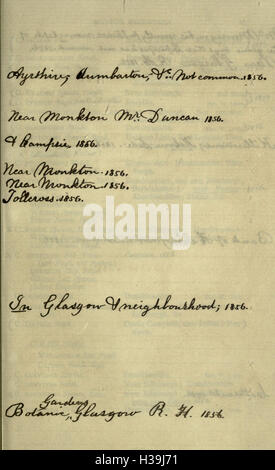 Ayrshire, Dumbarton, &c. Not common. 1856.
Near Monkton Mr. Duncan 1856.
& Campsie 1856.
Near Monkton. 1856.
Near Monkton. 1856.
Tollcross. 1856.
In Glasgow & neighbourhood; 1856.
Gardens
Botanic, Glasgow R. H. 1856.
alamy stock photo
H39J71